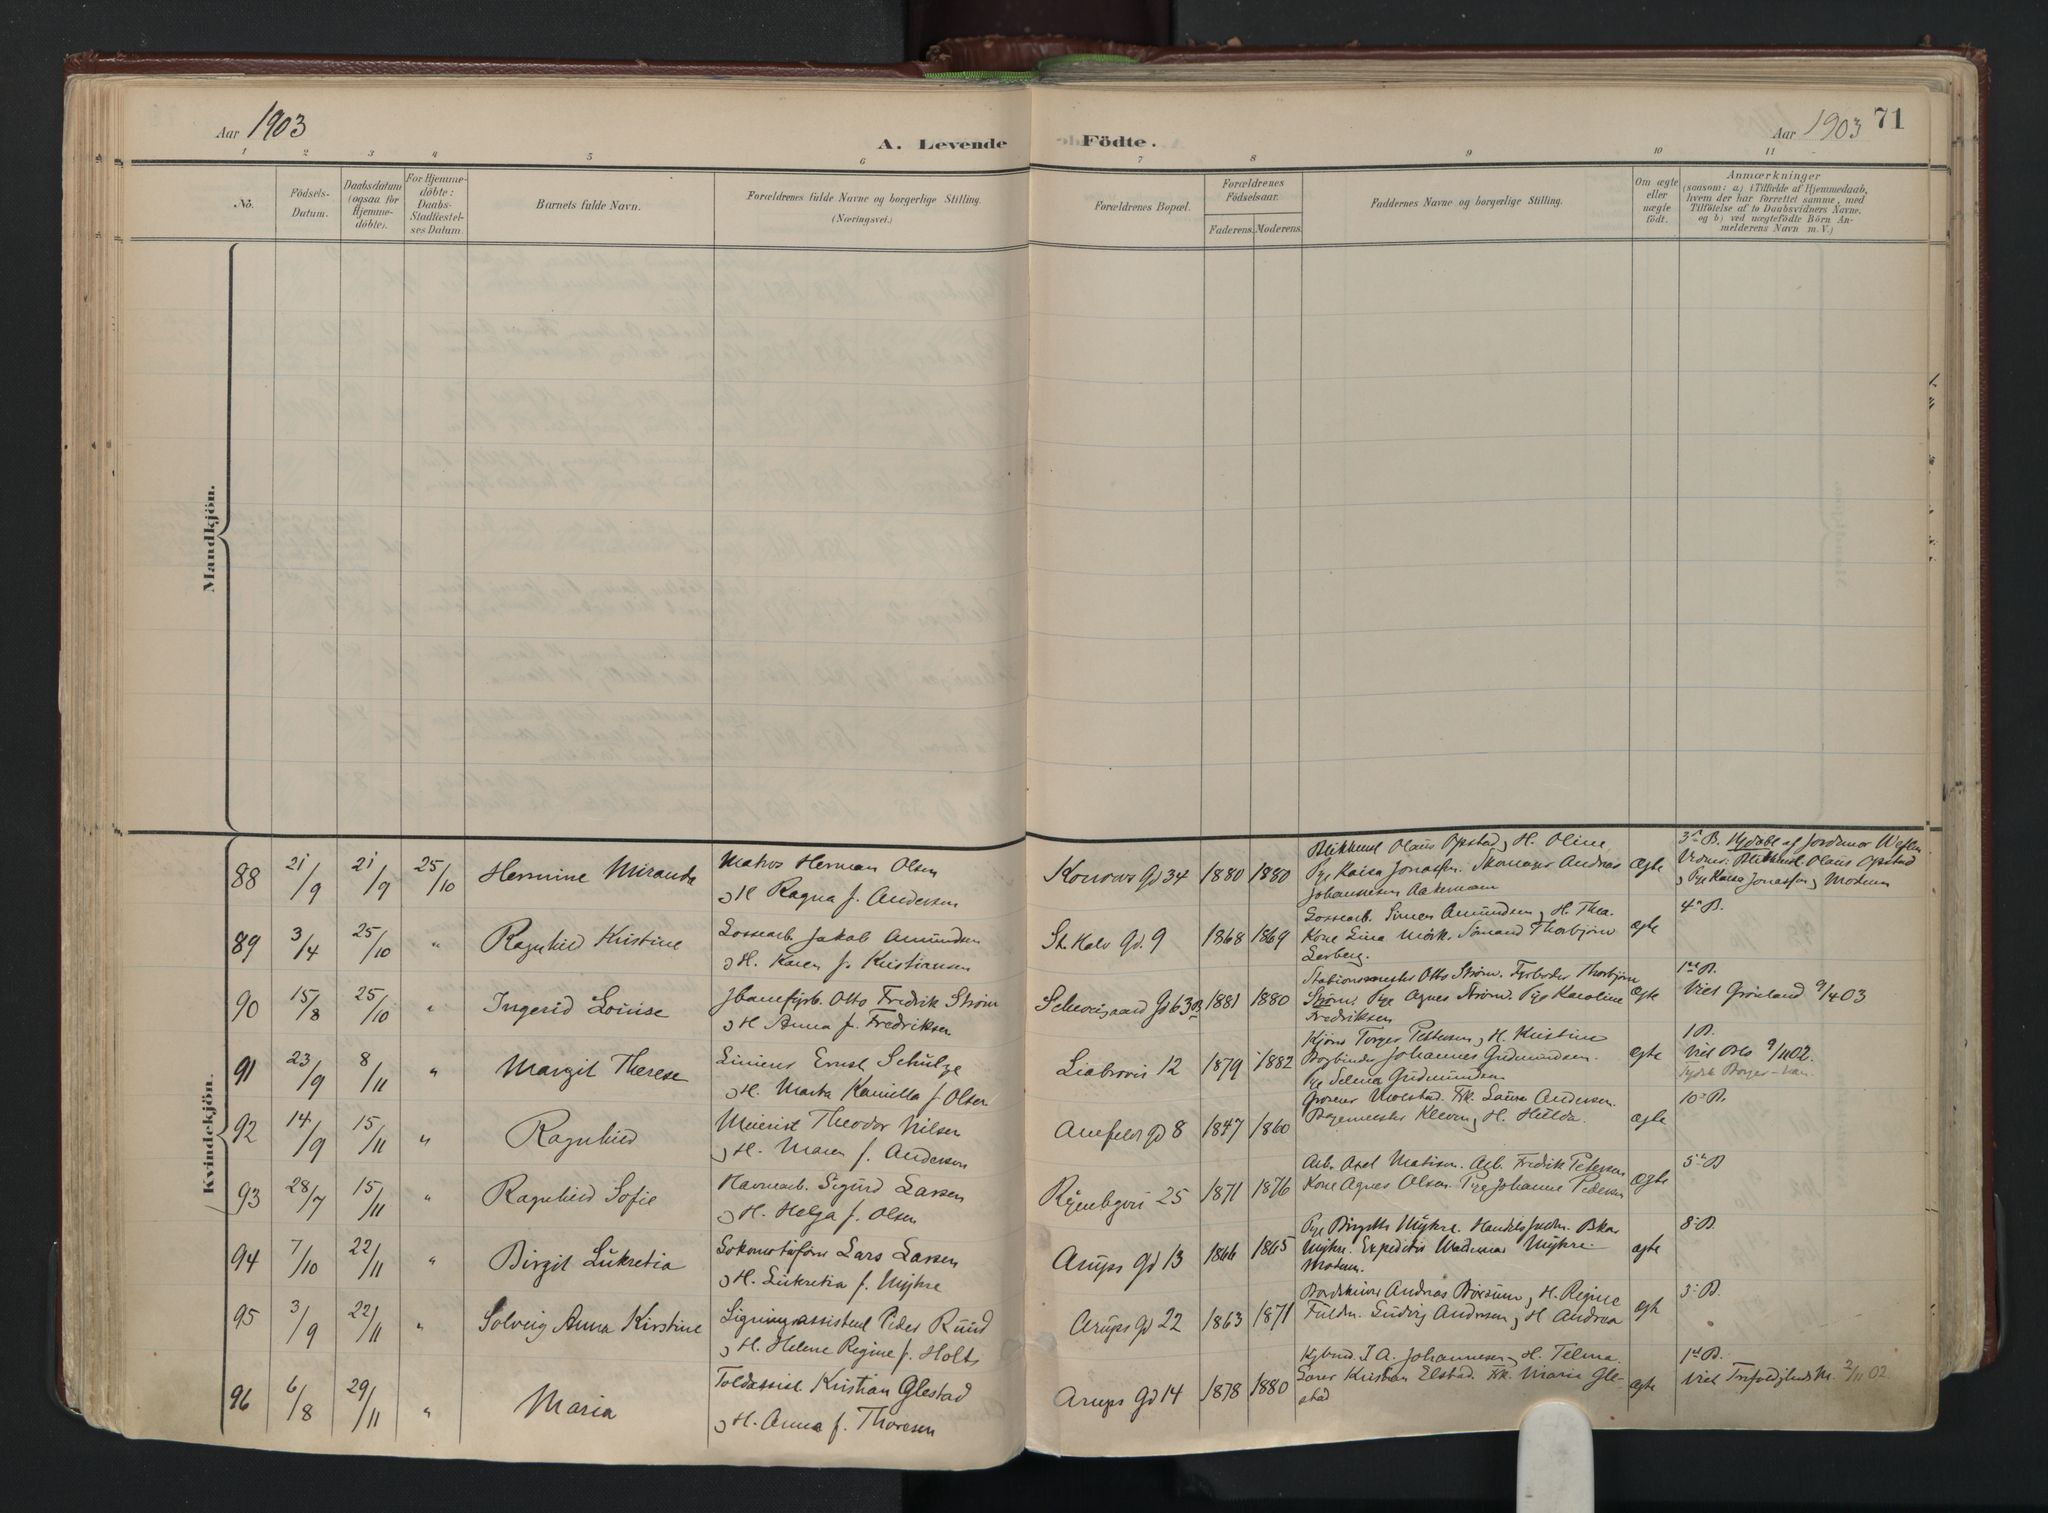 Aar 1903
A. Levende Födte.
Aar 1903 71
1 2 3 4 5 6 7 8 9 10 11
No.
Födsels-Datum.
Daabsdatum (ogsaa for Hjemmedöbte).
For Hjemmedöbte: Daabs-Stadfæstelses Datum.
Barnets fulde Navn.
Forældrenes fulde Navne og borgerlige Stilling. (Næringsvei.)
Forældrenes Bopæl.
Forældrenes Födselsaar.
Faderens. Moderens.
Faddernes Navne og borgerlige Stilling.
Om ægte eller uægte födt.
Anmærkninger
(saasom: a) i Tilfælde af Hjemmedaab, hvem der har forrettet samme, med Tilföielse af to Daabsvidners Navne, og b) ved uægtefödte Börn Anmelderens Navn m. V.)
Mandkjön.
Kvindekjön.
88 21/9 21/9 25/10 Hermine Miranda
Matros Herman Olsen
og H Ragna f. Andersen
1880 1880
Olaus Opstad, og H. Oline,
Pge Kaisa Jonassen. Andreas
Johannesen
ægte
3die B.
Olaus Opstad
og Pge Kaisa Jonassen, Modern
89 3/4 25/10 " Ragnhild Kristine
Lossearb. Jakob Amundsen
og H. Karen f. Kristiansen
St. Halv Gd. 9 1868 1869
Lossearb. Simen Amundsen og H. Thea.
Kone Lina Mörk. Sömand Thorbjörn
Lerberg.
ægte
4de B.
90 15/8 25/10 " Ingerid Louise
Jbanefyrb. Otto Fredrik Ström
og H Anna f. Fredriksen
Schweigaard Gd 63B 1881 1880
Stationsmester Otto Ström. Fyrböder Thorbjörn
Ström. Pge Agnes Ström. Pge Karoline
Fredriksen
ægte
1ste B.
Viet Grönland 9/4 03
91 23/9 8/11 " Margit Therese
Ernst Schulze
og H. Marta Kamilla f. Olsen
Liabrovei 12 1879 1882
Torger Pettersen, og H. Kristine
Bogbinder Johannes Gudmundsen.
Pge Selma Gudmundsen
ægte
1 B.
Viet Oslo 9/11 02.
Tydsk Borger
92 14/9 15/11 " Ragnhild
Meierist Theodor Nilsen
og H. Maren f. Andersen
Gd 8 1847 1860
Grosserer Molstad. Frk. Laura Andersen.
Bagemester Kleven og H. Hulda.
ægte
10de B.
93 28/7 15/11 " Ragnhild Sofie
Havnearb. Sigurd Larsen
og H. Helga f. Olsen
Ryenbgvei 25 1871 1876
Arb. Axel Matisen. Arb. Fredrik Petersen
Kone Agnes Olsen. Pge Johanne Pedersen
ægte
5te B
94 7/10 22/11 " Birgit Lukretia
Lokomotivförer Lars Larsen
og H. Lukretia f. Myhre
Arups Gd 13 1866 1865
Pge Birgitte Myhre.
Myhre. Myhre
Modern.
ægte
8de B.
95 3/9 22/11 " Solveig Anna Kirstine
Ligningsassistent Peder Ruud
og H. Helene Regine f. Holts
Arups Gd 22 1863 1871
Andreas Börsum, og H. Regine
Fuldm. Ludvig Andersen, og H Andrea
ægte
3die B.
96 6/8 29/11 " Maria
Toldassist Kristian Glestad
og H. Anna f. Thoresen
Arups Gd 14 1878 1880
J. A. Johannesen og H. Telma.
Kristian Elstad. Frk. Maria Glestad
ægte
1ste B.
Viet 2/11 02